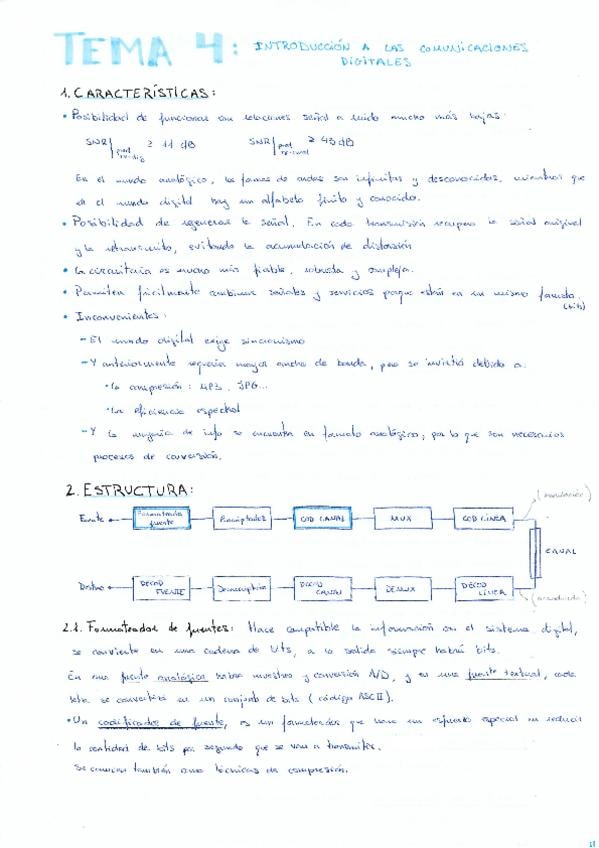 TEMA 4: INTRODUCCIÓN A LAS COMUNICACIONES
DIGITALES
1. CARACTERÍSTICAS:
• Posibilidad de funcionar con relaciones señal a ruido mucho más bajas:
SNR| ≥ 11 dB SNR| ≥ 43 dB
En el mundo analógico, las formas de ondas son infinitas y desconocidas, mientras que
en el mundo digital hay un alfabeto finito y conocido.
• Posibilidad de regenerar la señal. En cada transmisión recupero la señal original
y la retransmito, evitando la acumulación de distorsión
• La circuitería es mucho más fiable, robusta y compleja.
• Permiten fácilmente combinar señales y servicios porque están en un mismo formato.
(bits)
• Inconvenientes:
- El mundo digital exige sincronismo
- Y anteriormente requería mayor ancho de banda, pero se invirtió debido a:
• la compresión: MP3, JPG...
• La eficiencia espectral
- Y la mayoría de info se encuentra en formato analógico, por lo que son necesarios
procesos de conversión.
2. ESTRUCTURA:
(modulación)
Fuente Formateador fuente Encriptador COD CANAL MUX COD LÍNEA
CANAL
Destino DECOD FUENTE Desencriptor DECOD CANAL DEMUX DECOD LÍNEA
2.1. Formateador de fuentes: Hace compatible la información con el sistema digital,
se convierte en una cadena de bits, a la salida siempre habrá bits.
En una fuente analógica habrá muestreo y conversión A/D, y en una fuente textual, cada
letra se convertirá en un conjunto de bits (código ASCII).
• Un codificador de fuente, es un formateador que hace un esfuerzo especial en reducir
la cantidad de bits por segundo que se van a transmitir.
Se conocen también como técnicas de compresión.